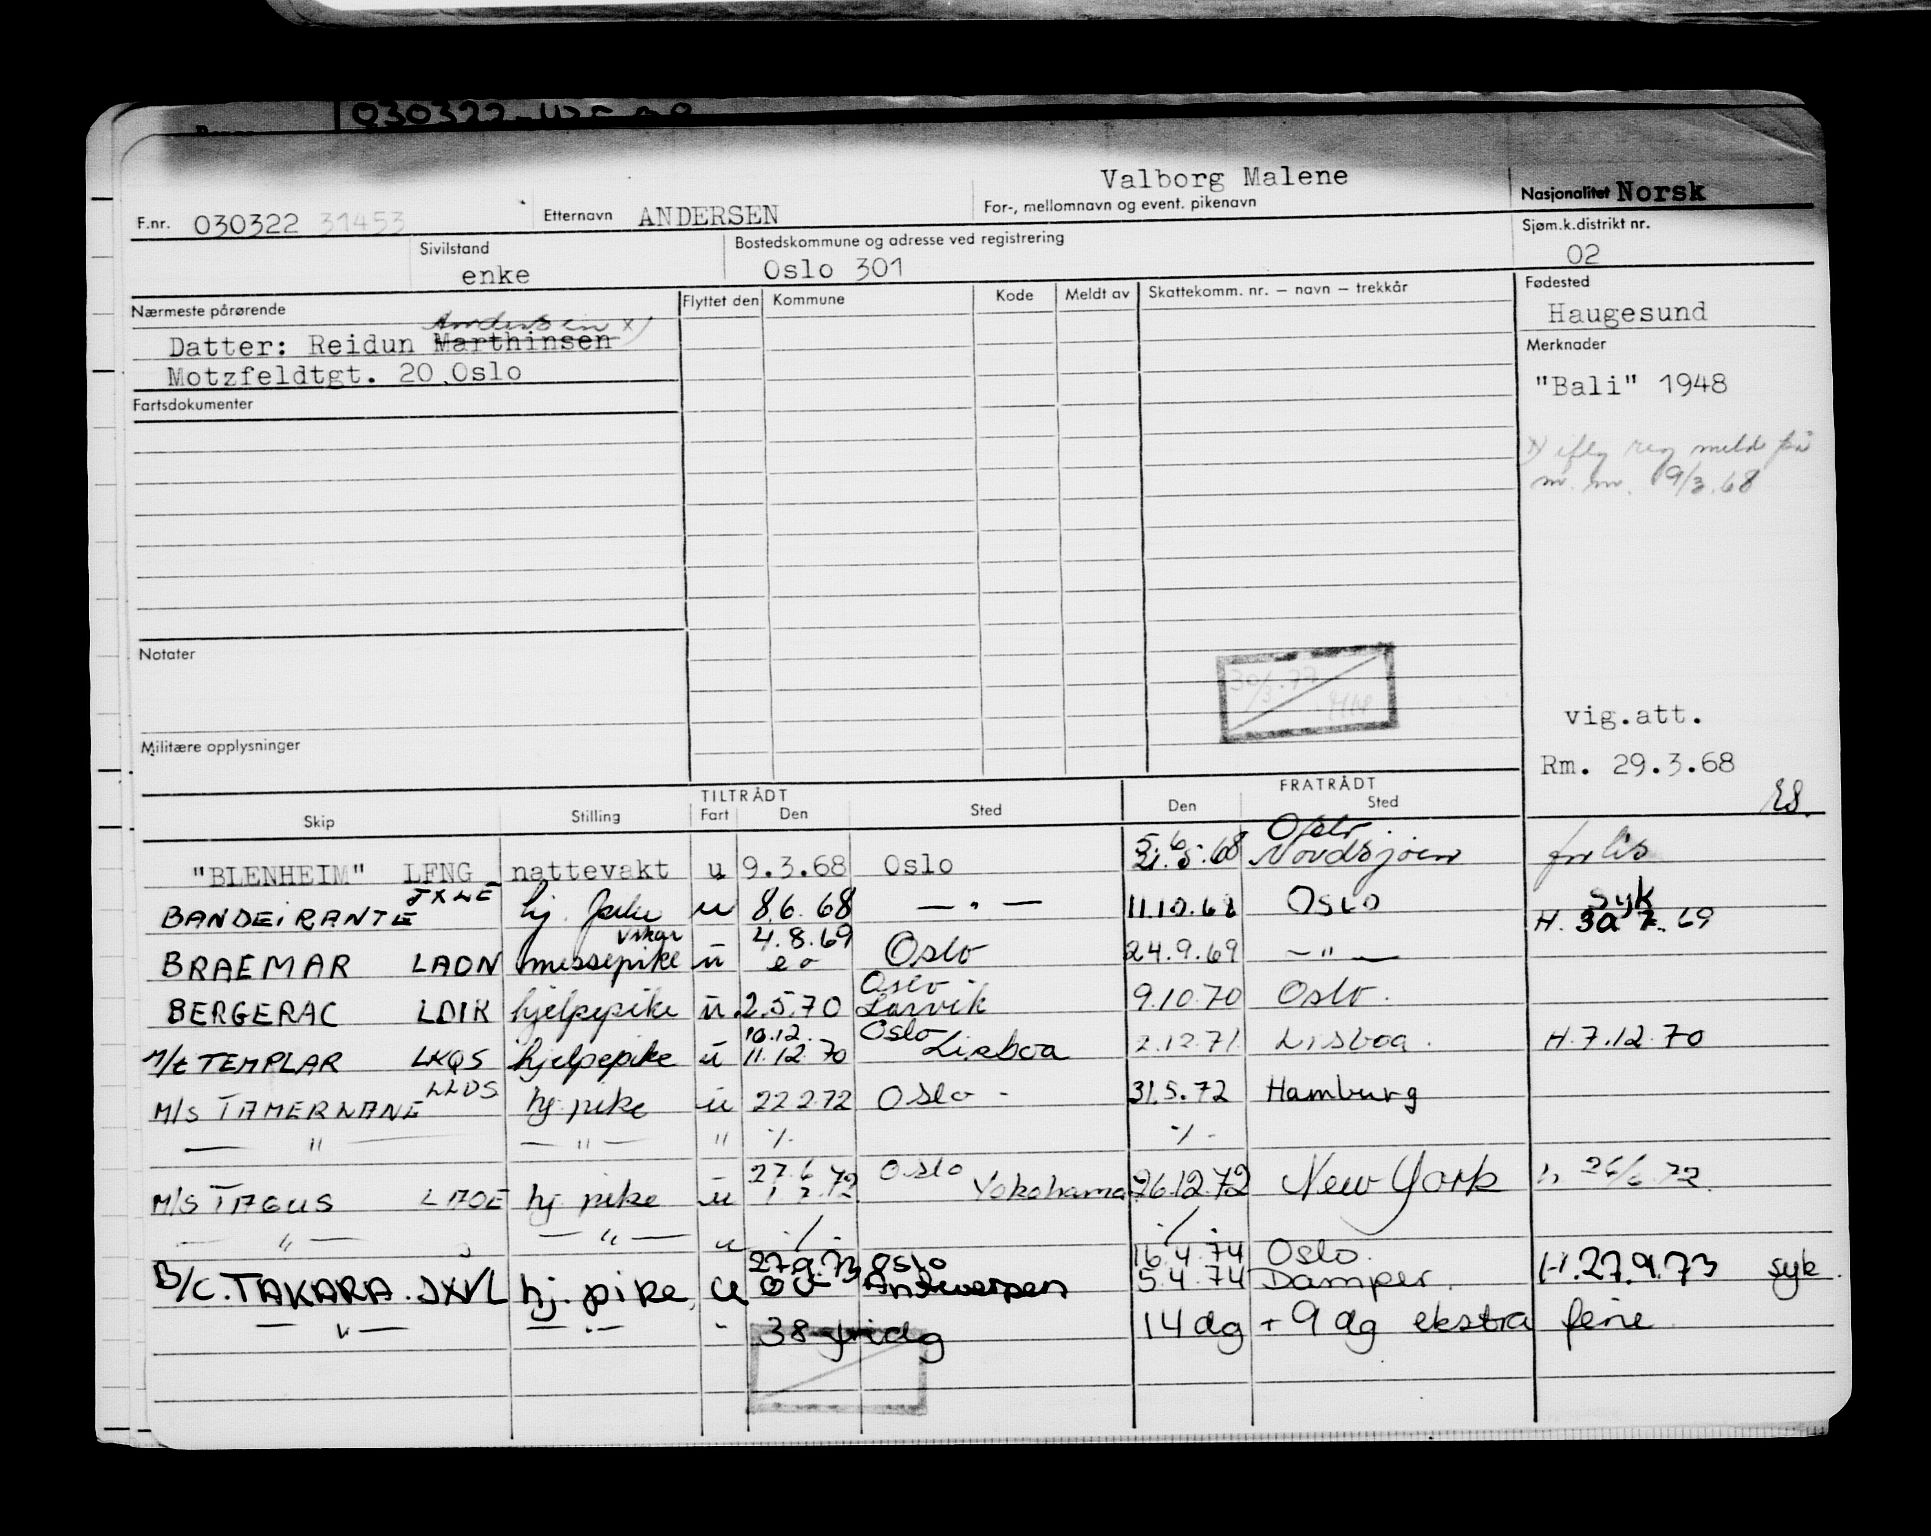 030322
Valborg Malene
F.nr. 030322 31453 Etternavn ANDERSEN For-, mellomnavn og event. pikenavn Nasjonalitet Norsk
Sivilstand Bostedskommune og adresse ved registrering Sjøm.k.distrikt nr.
enke Oslo 301 02
Nærmeste pårørende Flyttet den Kommune Kode Meldt av Skattekomm. nr. — navn — trekkår Fødested
Andersen x) Haugesund
Datter: Reidun Marthinsen Merknader
Motzfeldtgt. 20 Oslo "Bali" 1948
Fartsdokumenter
x) iflg reg meld på
m. m. 9/3.68
Notater
30/3.77
vig.att.
Militære opplysninger
Rm. 29.3.68
TILTRÅDT FRATRÅDT
Skip Stilling Fart Den Sted Den Sted
5.6 Oslo
"BLENHEIM" LFNG nattevakt u 9.3.68 Oslo 21.5.68 Nordsjøen forlis
JXLE syk
BANDEIRANTE hj. pike u 8.6.68 — " — 11.10.68 Oslo H. 30.7.69
vikar 4.8.69
BRAEMAR LADN messepike u Oslo 24.9.69 — " —
Oslo
BERGERAC LDIK hjelpepike u 2.5.70 Larvik 9.10.70 Oslo.
10.12. Oslo
M/t TEMPLAR LKQS hjelpepike u 11.12.70 Lisboa 2.12.71 Lisboa. H. 7.12.70
LLDS
M/S TAMERLANE hj. pike u 22.2.72 Oslo - 31.5.72 Hamburg
— " — — " — " ·/. ·/.
27.6.72 Oslo
M/S TAGUS LAOE hj. pike u 1.7.72 Yokohama 26.12.72 New York h 26/6.72
— " — — " — u ·/. ·/.
27.9.73 Oslo 16.4.74 Oslo.
B/C. TAKARA. JXVL hj. pike u Antwerpen 5.4.74 Damper. H. 27.9.73 syk.
— " — — " — " 38 fridg 14 dg + 9 dg ekstra ferie